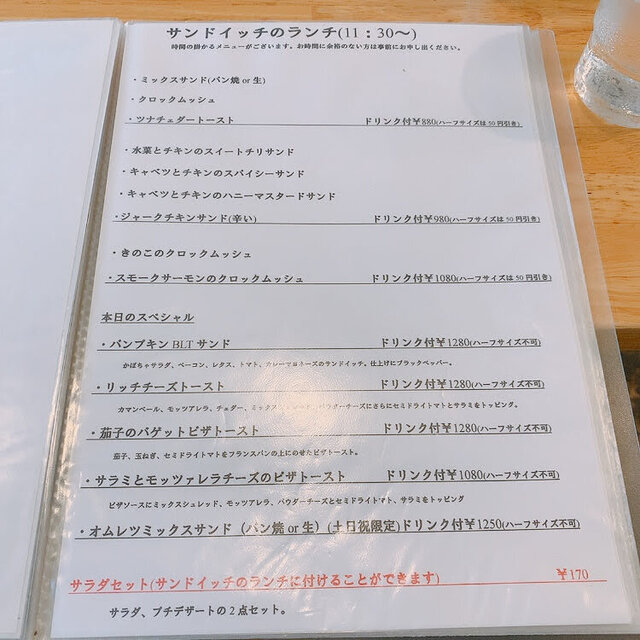 サンドイッチのランチ(11：30～)
時間の掛かるメニューがございます。お時間に余裕のない方は事前にお申し出ください。
・ミックスサンド(パン焼 or 生)
・クロックムッシュ
・ツナチェダートースト ドリンク付￥880(ハーフサイズは 50 円引き)
・水菜とチキンのスイートチリサンド
・キャベツとチキンのスパイシーサンド
・キャベツとチキンのハニーマスタードサンド
・ジャークチキンサンド(辛い) ドリンク付￥980(ハーフサイズは 50 円引き)
・きのこのクロックムッシュ
・スモークサーモンのクロックムッシュ ドリンク付￥1080(ハーフサイズは 50 円引き)
本日のスペシャル
・パンプキン BLT サンド ドリンク付￥1280(ハーフサイズ不可)
かぼちゃサラダ、ベーコン、レタス、トマト、カレーマヨネーズのサンドイッチ。仕上げにブラックペッパー。
・リッチチーズトースト ドリンク付￥1280(ハーフサイズ不可)
カマンベール、モッツアレラ、チェダー、ミックス パウダーチーズにさらにセミドライトマトとサラミをトッピング。
・茄子のバゲットピザトースト ドリンク付￥1280(ハーフサイズ不可)
茄子、玉ねぎ、セミドライトマトをフランスパンの上にのせたピザトースト。
・サラミとモッツァレラチーズのピザトースト ドリンク付￥1080(ハーフサイズ不可)
ピザソースにミックスシュレッド、モッツアレラ、パウダーチーズとセミドライトマト、サラミをトッピング
・オムレツミックスサンド（パン焼 or 生）(土日祝限定)ドリンク付￥1250(ハーフサイズ不可)
サラダセット(サンドイッチのランチに付けることができます) ￥170
サラダ、プチデザートの 2 点セット。